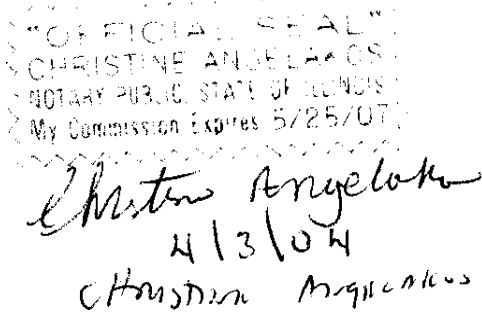 "OFFICIAL SEAL"
CHRISTINE ANGELAKOS
NOTARY PUBLIC STATE OF ILLINOIS
My Commission Expires 5/25/07
Christine Angelakos
4/3/04
Christine Angelakos